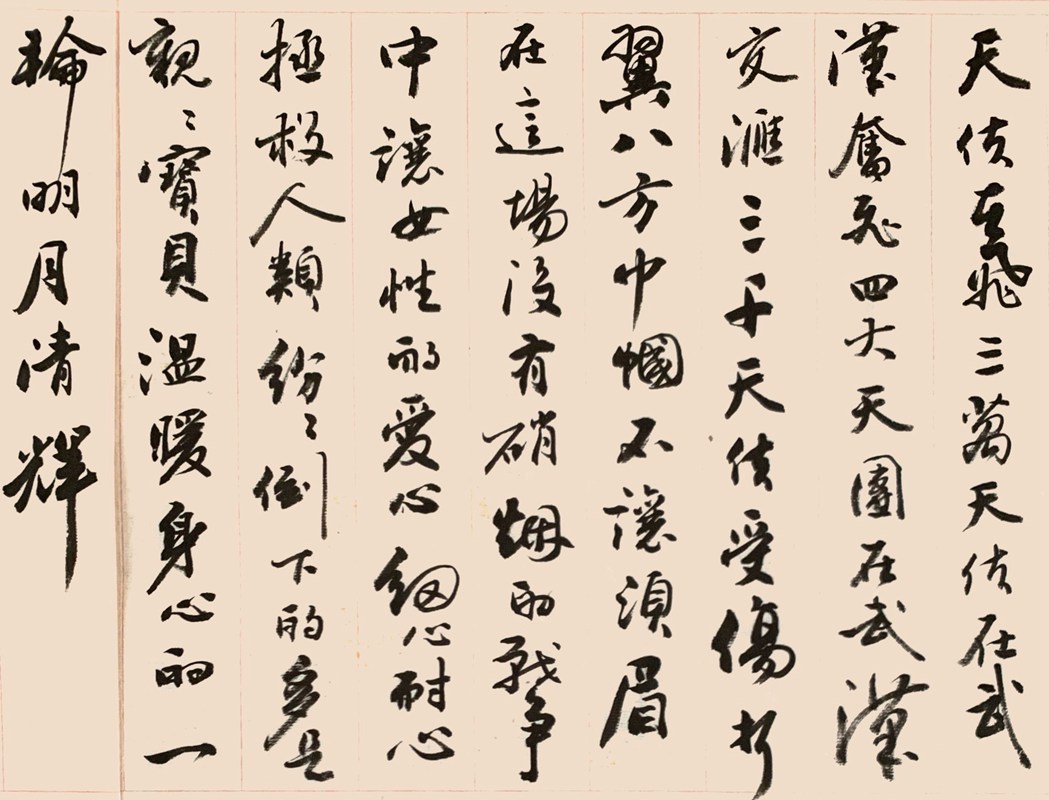 天使在飛三萬天使在武
漢奮飛四大天團在武漢
交滙三千天使受傷折
翼八方巾幗不讓須眉
在這場沒有硝烟的戰爭
中讓女性的愛心細心耐心
拯救人類紛〻倒下的多是
親〻寶貝溫暖身心的一
輪明月清輝